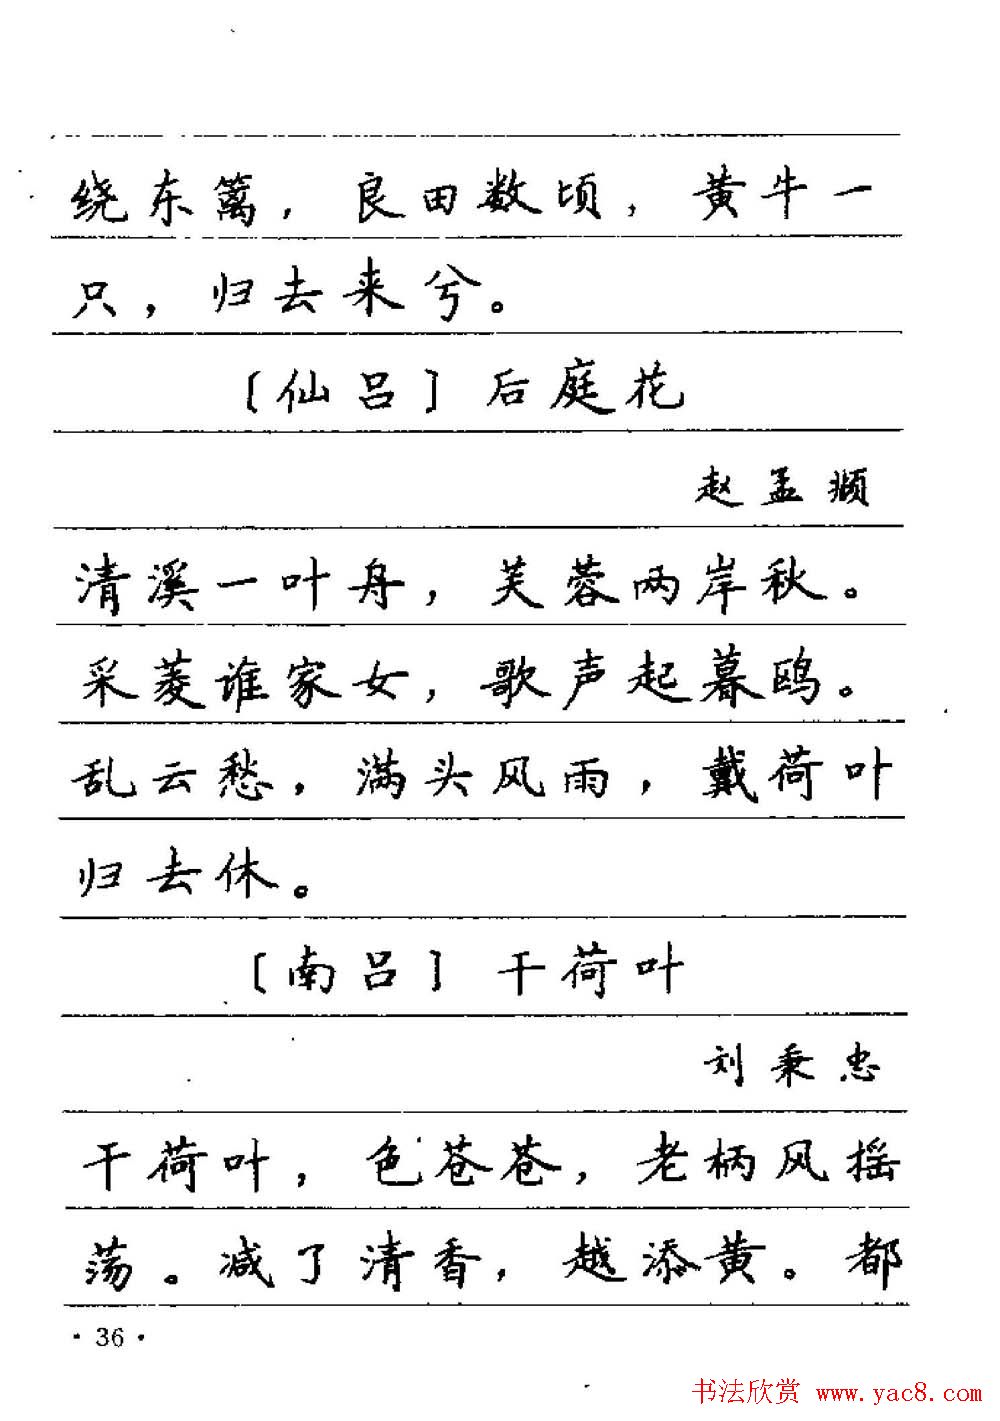 绕东篱，良田数顷，黄牛一
只，归去来兮。
〔仙吕〕后庭花
赵孟頫
清溪一叶舟，芙蓉两岸秋。
采菱谁家女，歌声起暮鸥。
乱云愁，满头风雨，戴荷叶
归去休。
〔南吕〕干荷叶
刘秉忠
干荷叶，色苍苍，老柄风摇
荡。减了清香，越添黄。都
·36·
书法欣赏 www.yac8.com